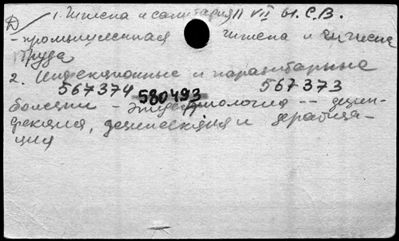 Д) 1. Гигиена и санитария VII Ы. С.В.
- промышленная гигиена и гигиена
труда
2. Инфекционные и паразитарные
567374 580493 567373
болезни - эпидемиология -- дезин-
фекция, дезинсекция и дератиза-
ция